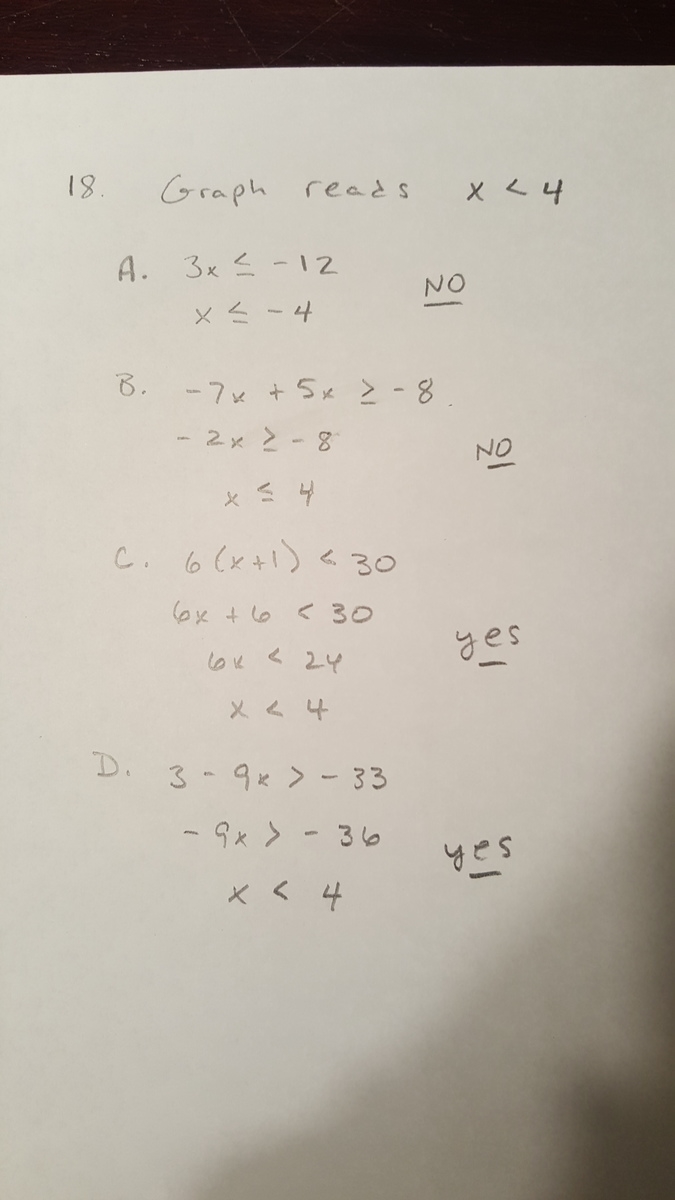 18. Graph reads x < 4
A. 3x ≤ -12
NO
x ≤ -4
B. -7x + 5x ≥ -8
-2x ≥ -8
NO
x ≤ 4
C. 6(x+1) < 30
6x + 6 < 30
yes
6x < 24
x < 4
D. 3 - 9x > -33
-9x > -36
yes
x < 4